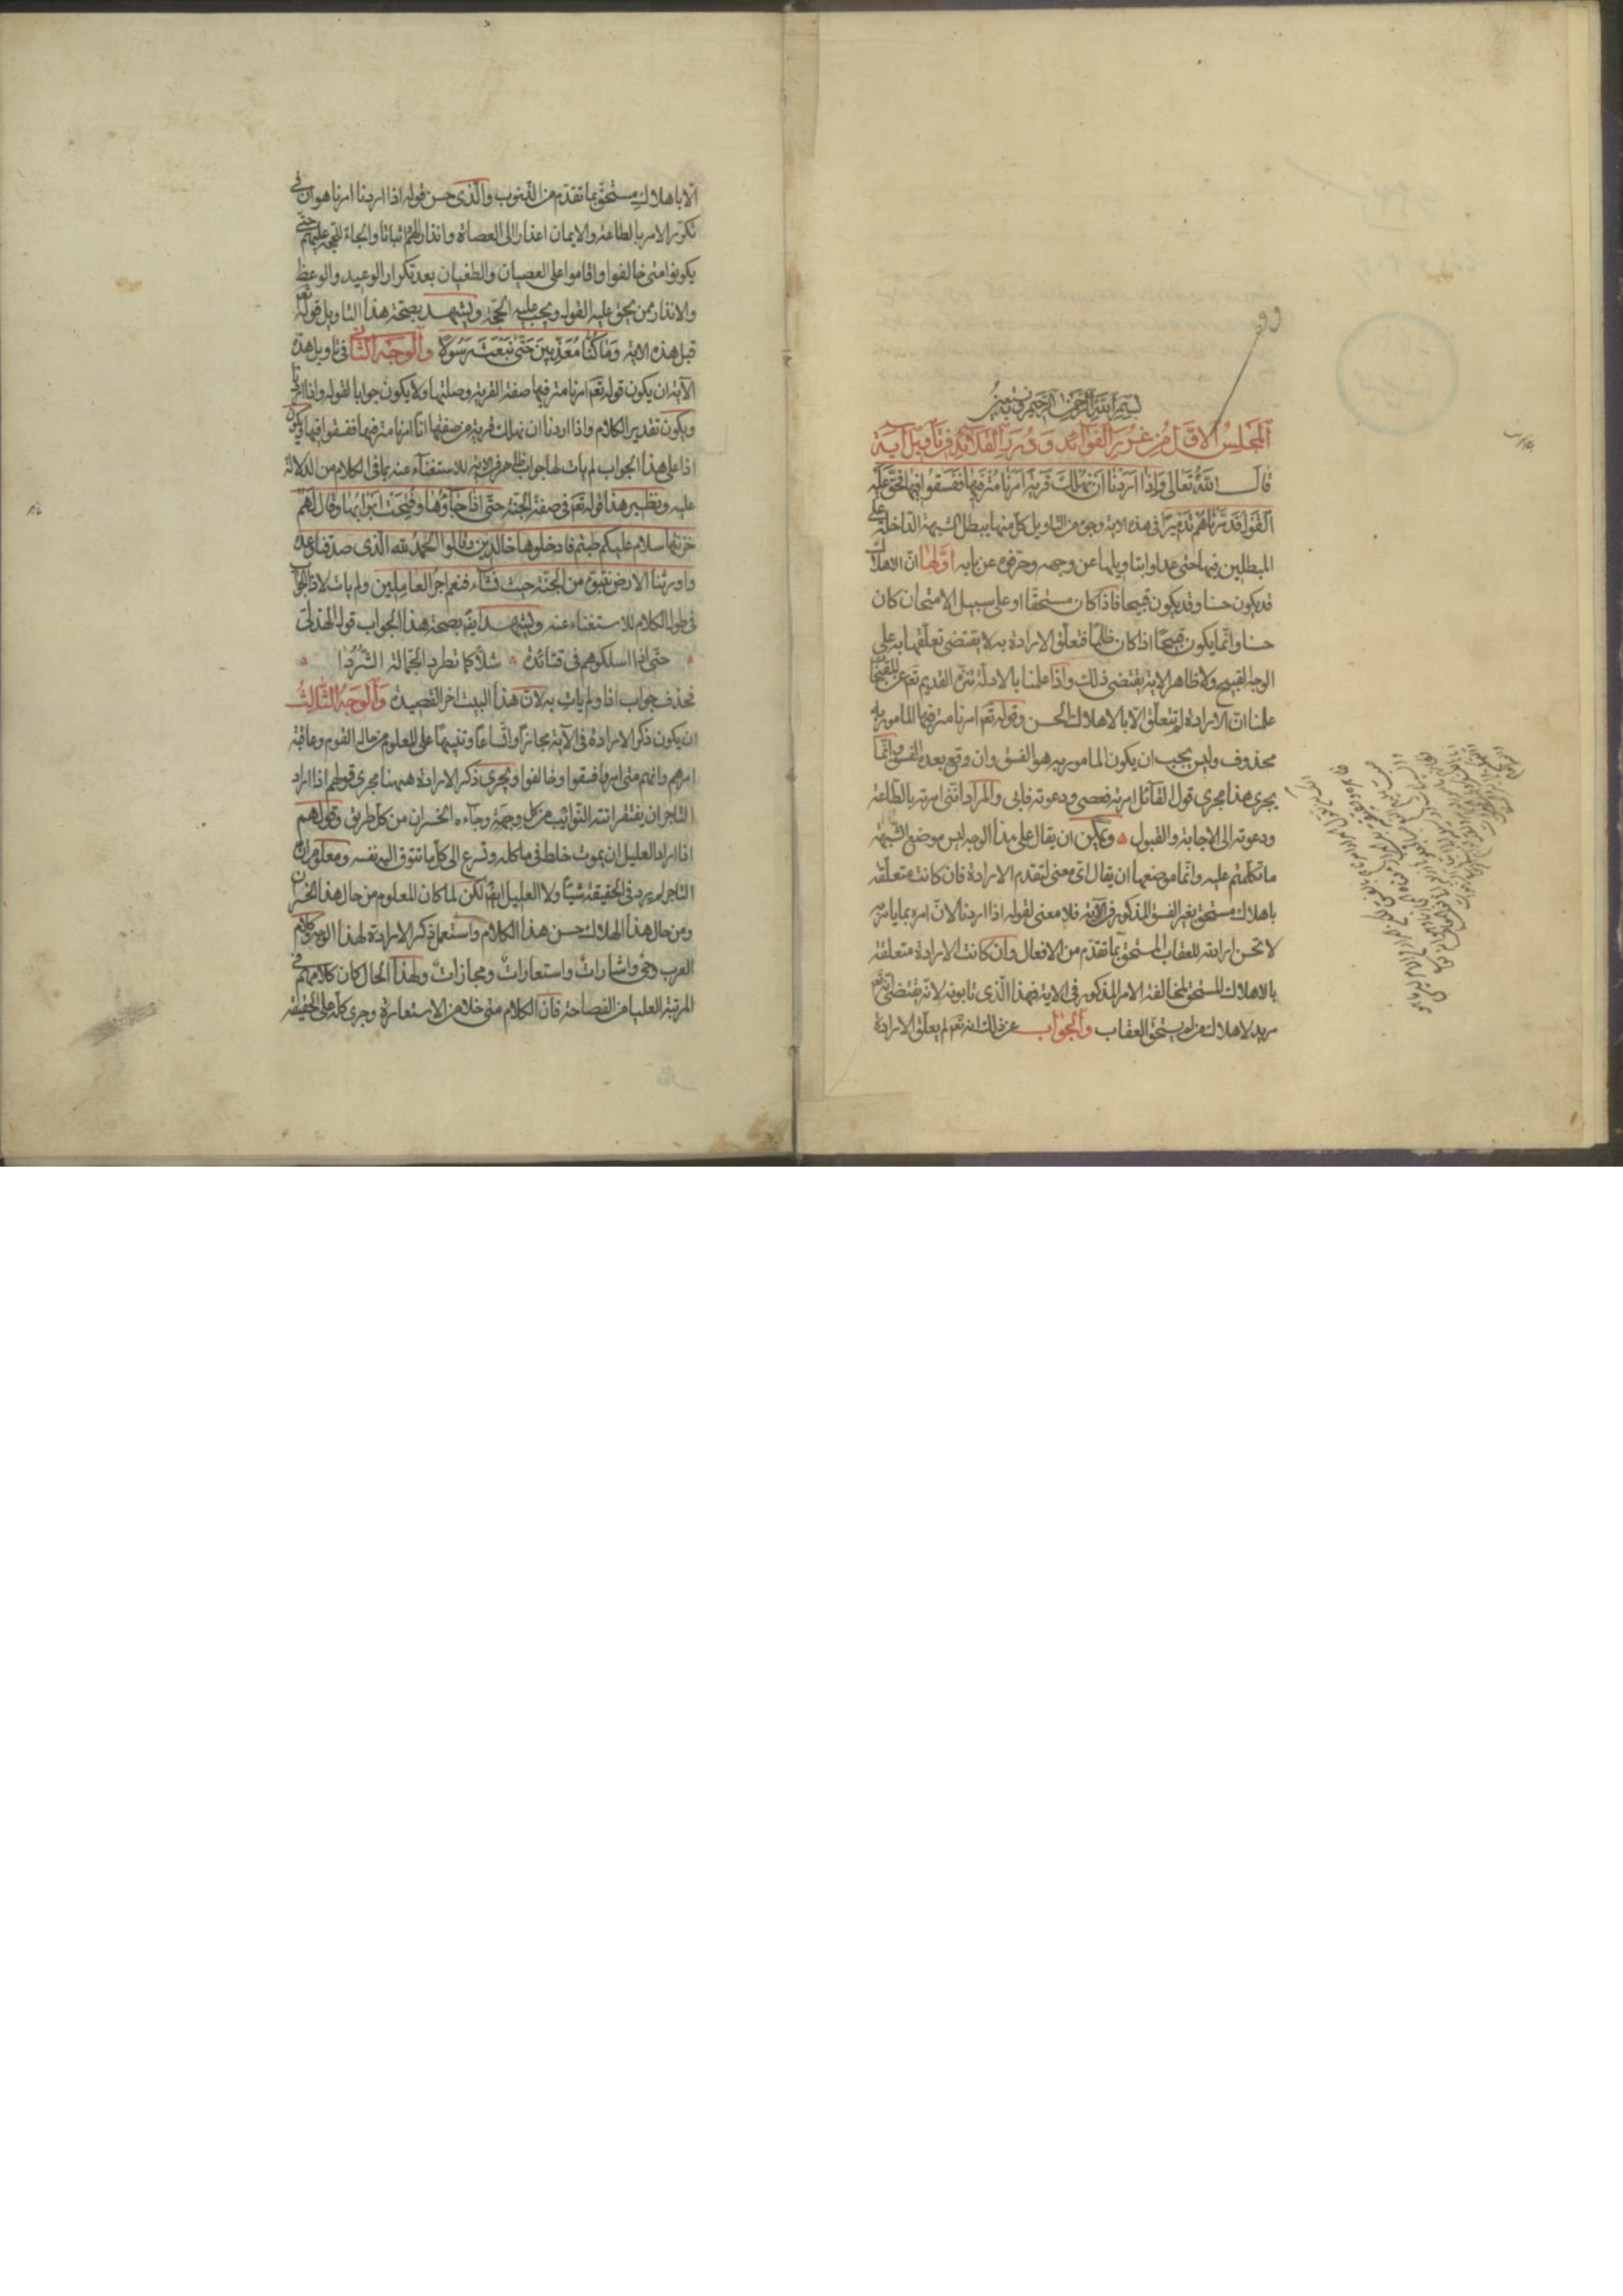 بسم الله الرحمن الرحيم وبه نستعين
المجلس الاول من غرر الفوائد ودرر القلائد في تاويل آية
قال الله تعالى وَاِذَا اَرَدْنَا اَنْ نُهْلِكَ قَرْيَةً اَمَرْنَا مُتْرَفِيهَا فَفَسَقُوا فِيهَا فَحَقَّ عَلَيْهَا
الْقَوْلُ فَدَمَّرْنَاهُمْ تَدْمِيرًا في هذه الاية وجوه من التاويل كل منها يبطل الشبهة الداخلة على
المبطلين فيها حتى عدلوا بتاويلها عن وجهه وحرفوه عن بابه اوّلها انّ الاهلاك
قد يكون حسنا وقد يكون قبيحا فاذا كان مستحقا او على سبيل الامتحان كان
حسنا وانّما يكون قبيحًا اذا كان ظلمًا فتعلّق الارادة به لا يقتضى تعلّقها به على
الوجه القبيح ولا ظاهر الاية يقتضى ذلك واذا علمنا بالادلّة تنزّه القديم تعم عن القبائح
علمنا انّ الارادة لم تتعلّق الّا بالاهلاك الحسن وقوله تعم امرنا مترفيها المامور به
محذوف وليس يجب ان يكون المامور به هو الفسق وان وقع بعده الفسق وانّما
يجرى هذا مجرى قول القآئل امرته فعصى ودعوته فابى والمراد انّنى امرته بالطّاعة
ودعوته الى الاجابة والقبول ويمكن ان يقال على هذا الوجه ليس موضع الشبهة
ما تكلّمتم عليه وانّما موضعها ان يقال اى معنى لتقدم الارادة فان كانت متعلّقة
باهلاك مستحق بغير الفسق المذكور فى الآية فلا معنى لقوله اذا اردنا لانّ امره بما يامر به
لا تحسن ارادته للعقاب المستحق بما تقدّم من الافعال وان كانت الارادة متعلقة
بالاهلاك المستحق بمخالفة الامر المذكور فى الاية فهذا الّذى تابونه لانّه يقتضى انّه تعم
مريد لاهلاك من لم يستحق العقاب والجواب عن ذلك انه تعم لم يعلّق الارادة
الّا باهلاك مستحق بما تقدّم من الذّنوب والّذى حسن قوله اذا اردنا امرنا هو ان فى
تكرّر الامر بالطاعة والايمان اعذارا الى العصاة وانذارا لهم واثباتا وايجابا للحجّة عليهم حتّى
يكونوا متى خالفوا واقاموا على العصيان والطغيان بعد تكرار الوعيد والوعظ
والانذار ممن يحق عليه القول ويجب عليه الحجّة ويشهد بصحّة هذا التاويل قوله تعم
قبل هذه الاية وَمَا كُنَّا مُعَذِّبِينَ حَتَّى نَبْعَثَ رَسُولًا والوجه الثّانى فى تاويل هذه
الآية ان يكون قوله تعم امرنا مترفيها صفة القرية وصلتها ولا يكون جوابا لقوله واذا اردنا
ويكون تقدير الكلام واذا اردنا ان نهلك قرية من صفتها انّا امرنا مترفيها ففسقوا فيها وتكون
اذا على هذا الجواب لم يات لها جواب ظاهر فى الاية للاستغناء عنه بما فى الكلام من الدلالة
عليه ونظير هذا قوله تعم فى صفة الجنّة حتّى اذا جآؤُها وفُتحت ابوابها وقال لهم
خزنتها سلام عليكم طبتم فادخلوها خالدين وقالوا الحمد لله الّذى صدقنا وعده
واورثنا الارض نتبوّء من الجنّة حيث نشآء فنعم اجر العاملين ولم يات لاذا جواب
فى طول الكلام للاستغناء عنه ويشهد ايضا بصحّة هذا الجواب قول الهذلى
حتّى اذا اسلكوهم فى قتائدة شلّا كما تطرد الجمّالة الشّردا
فحذف جواب اذا ولم يات به لانّ هذا البيت اخر القصيدة والوجه الثّالث
ان يكون ذكر الارادة فى الآية مجازا واتّساعا وتنبيها على المعلوم من حال القوم وعاقبة
امرهم وانهم متى امروا فسقوا وخالفوا ويجرى ذكر الارادة ههنا مجرى قولهم اذا اراد
التاجر ان يفتقر اتته النّوائب من كل وجهة وجآءه الخسران من كل طريق وقولهم
اذا اراد العليل ان يموت خلط فى ماكله وتسرع الى كل ما تتوق اليه نفسه ومعلوم ان
التاجر لم يرد فى الحقيقة شيئا ولا العليل ايضا لكن لما كان المعلوم من حال هذا الخسران
ومن حال هذا الهلاك حسن هذا الكلام واستعمل ذكر الارادة لهذا الوجه وكلام
العرب وحى واشارات واستعارات ومجازات ولهذا الحال كان كلامهم فى
المرتبة العليا من الفصاحة فان الكلام متى خلا من الاستعارة وجرى كلّه على الحقيقة